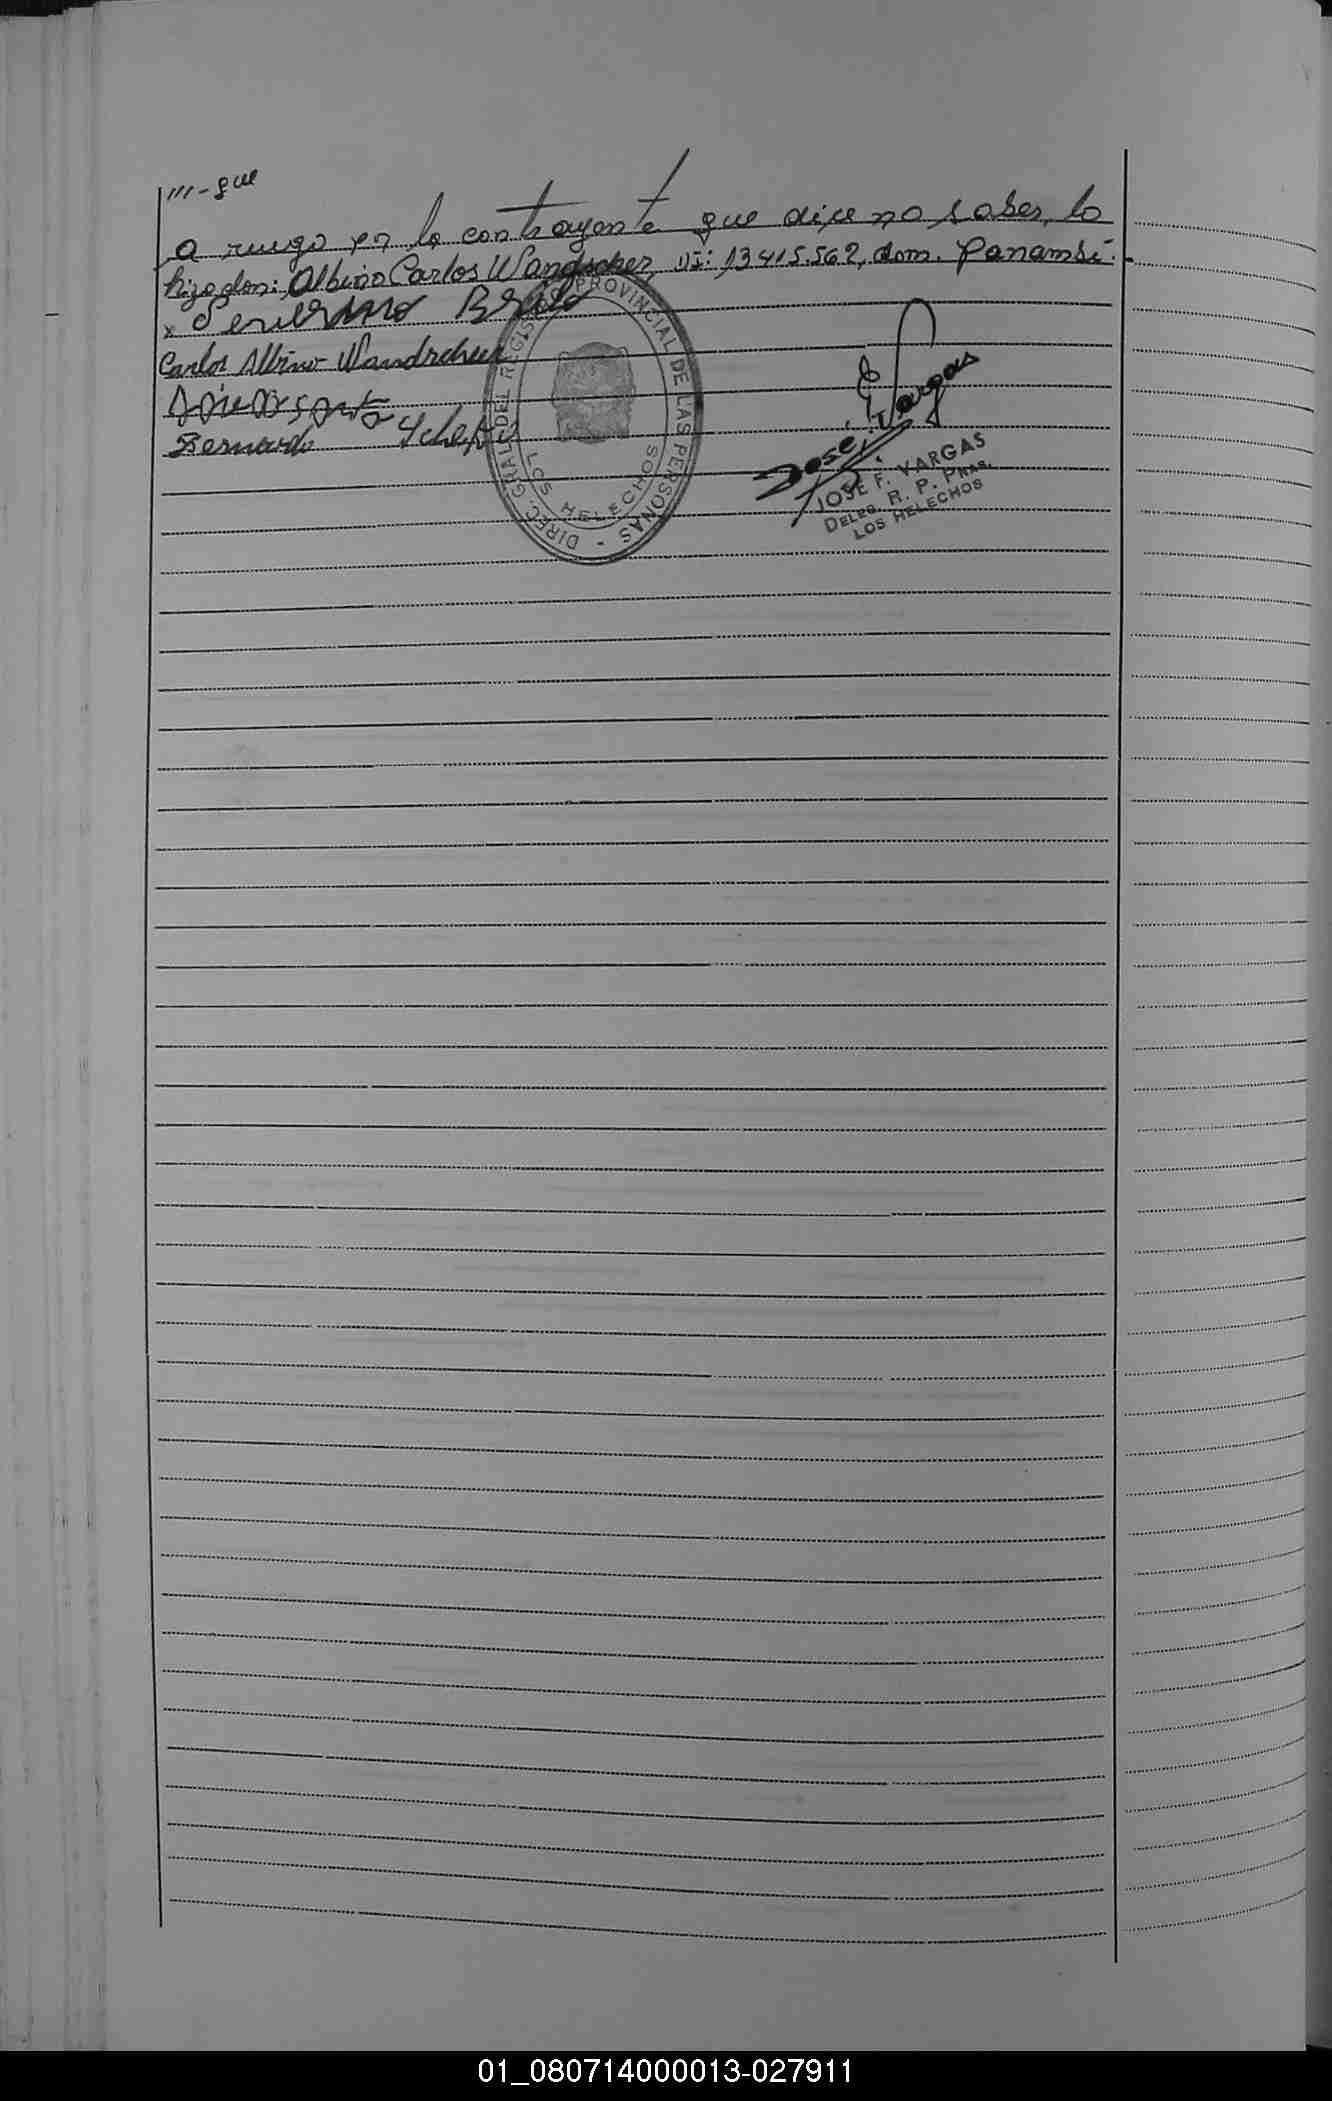 ///-que
a ruego por la contrayente que dice no saber, lo
hizo don: Albino Carlos Wandscher, MI: 13.415.562, dom. Panambí.-
x
Carlos Albino Wandscheer
Bernardo
DIREC. GRAL. DEL REGISTRO PROVINCIAL DE LAS PERSONAS -
LOS HELECHOS
José F. Vargas
JOSE F. VARGAS
DELEG. R. P. PNAS.
LOS HELECHOS
01_080714000013-027911